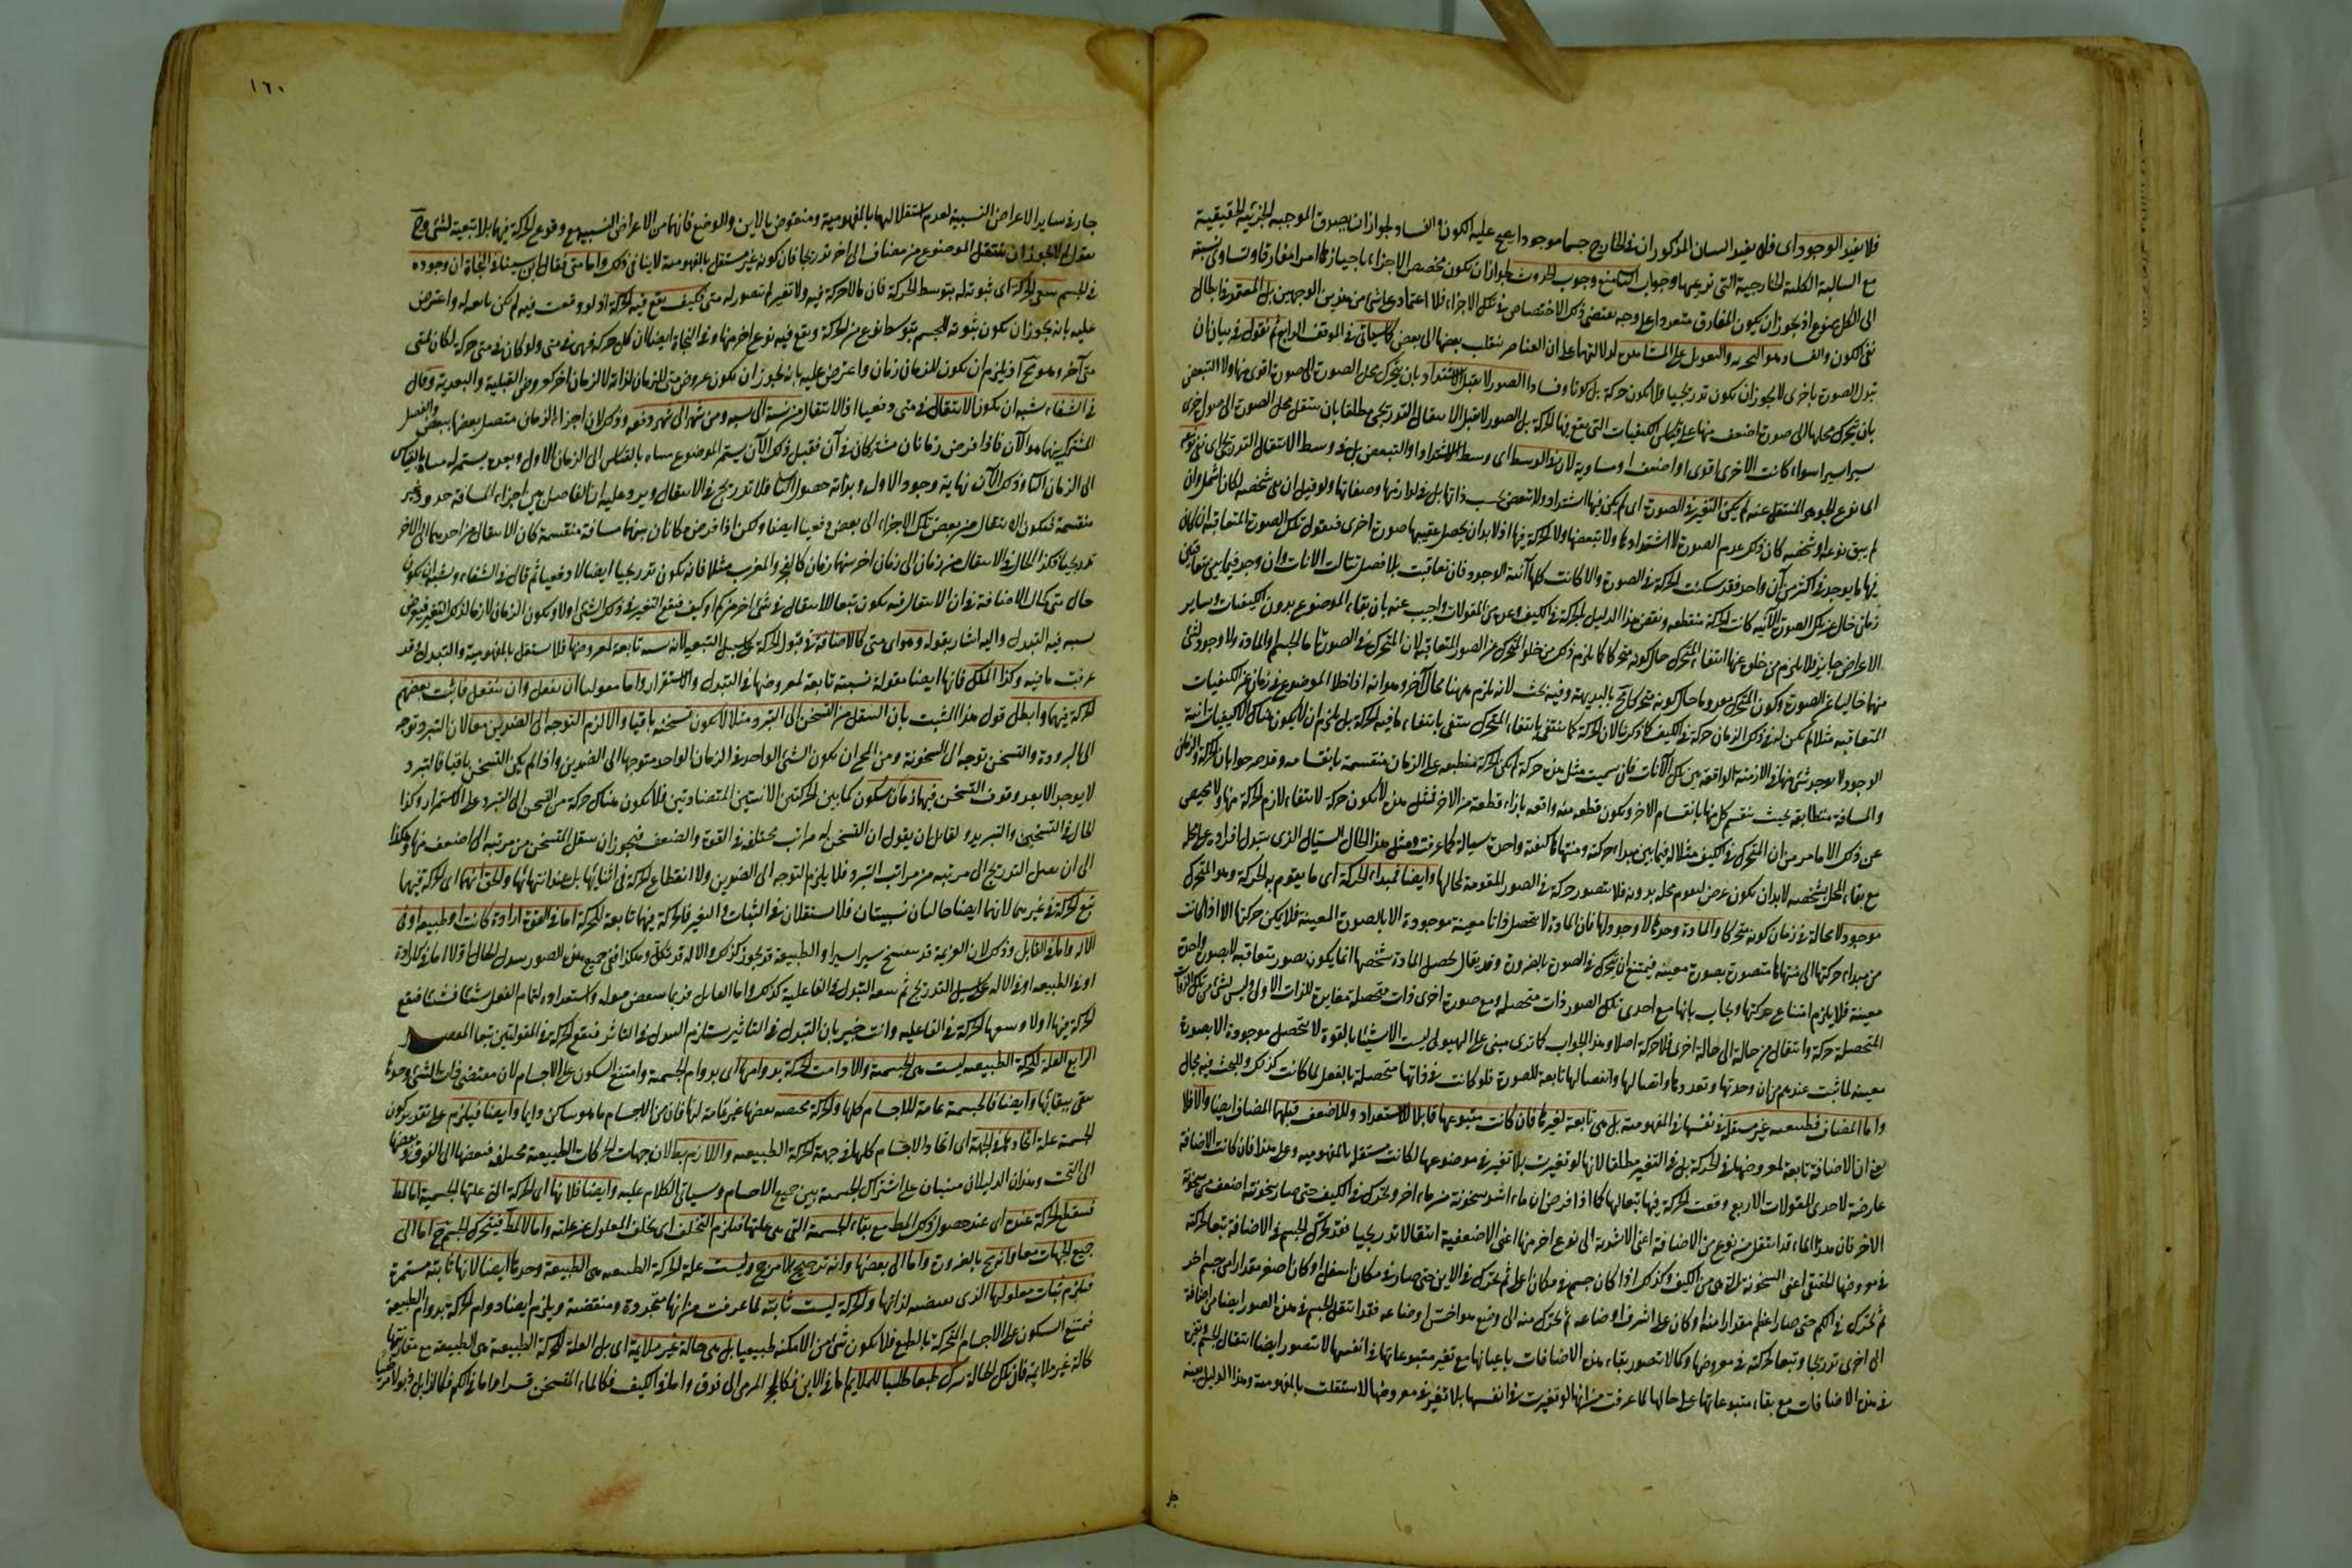 فلا يفيد الوجود اى فلا يفيد السان المذكوران فى الخارج جسما موجودا يصح عليه الكون والفساد لجواز ان يصدق الموجبه الجزئية الحقيقية
مع السالبة الكلية الخارجية التى ندعيها وجواب الثانى منع وجوب الحدوث لجواز ان يكون مخصص الاجزاء باحيازها امرا مفارقا وتساوى نسبته
الى الكل ممنوع اذ يجوز ان يكون المفارق متعددا على وجه يقتضى ذلك الاختصاص فى تلك الاجزاء فلا اعتماد على شئ من هذين الوجهين بل المعتمد فى ابطال
نفى الكون والفساد هو التجربه والتعويل على المشاهدة لدلالتها على ان العناصر ينقلب بعضها الى بعض كما سيأتى فى الموقف الرابع ثم نقول فى بيان ان
تبدل الصورة باخرى لا يجوز ان يكون تدريجيا فلا يكون حركة بل كونا وفسادا الصور لا تقبل الاشتداد بان يتحرك محل الصورة الى صورة اقوى منها ولا التنقص
بان يتحرك محلها الى صورة اضعف منها على قياس الكيفيات التى يقع فيها الحركة بل الصور لا تقبل الانتقال التدريجى مطلقا بان ينتقل محل الصورة الى صورة اخرى
يسيرا يسيرا سواء كانت الاخرى اقوى او اضعف او مساوية لان فى الوسط اى وسط الاشتداد او التنقص بل فى وسط الانتقال التدريجى ان بقى نوعه
اى نوع الجوهر المنتقل عنه لم يكن التغير فى الصورة اى لم يكن فيها اشتداد ولا تنقص بحسب ذاتها بل فى لوازمها وصفاتها ولو قيل ان بقى شخصه لكان اشمل وان
لم يبق نوعه او شخصه كان ذلك عدم الصورة لا اشتدادها ولا تنقصها ولا الحركة فيها اذ لا بد ان يحصل عقيبها صورة اخرى فنقول تلك الصور المتعاقبة ان كان
فيها ما يوجد فى اكثر من آن واحد فقد سكنت الحركة فى الصورة والا كانت كلها آنية الوجود فان تعاقبت بلا فصل تتالت الانات وان وجد فيما بين متعاقبين
زمان خال عن تلك الصور الآنيه كانت الحركة منقطعه ونقض هذا الدليل بالحركة فى الكيف وغيره من المقولات واجيب عنه بان بقاء الموضوع بدون الكيفيات وسائر
الاعراض جايز فلا يلزم من خلوه عنها انتفاء المتحرك حال كونه متحركا كما يلزم ذلك من خلو المتحرك عن الصور المتعاقبه لان المتحرك فى الصورة اما الجسم او المادة ولا وجود لشئ
منهما خاليا عن الصورة وكون المتحرك معدوما حال كونه متحركا مح بالبديهة وفيه بحث لانه يلزم ههنا محال آخر وهو انه اذا خلا الموضوع فى زمان عن الكيفيات
المتعاقبه مثلا لم يكن له فى ذلك الزمان حركة فى الكيف كما ذكرنا لان الحركة كما تنتفى بانتفاء المتحرك تنتفى بانتفاء ما فيه الحركة بل يلزم ان لا يكون هناك الا كيفيات آنية
الوجود لا يوجد شئ منها فى الازمنة الواقعه بين تلك الآنات فان سميت مثل هذه حركة لم يكن الحركة منطبقه على الزمان منقسمة بانقسامه وقد صرحوا بان الحركة والزمان
والمسافة متطابقه بحيث ينقسم كل منها بانقسام الاخر ويكون قطعه منه واقعه بازاء قطعة من الاخر فمثل هذه لا يكون حركة لانتفاء لازم الحركة منها ولا محيص
عن ذلك الا ما مر من ان المتحرك فى الكيف مثلا له فيما بين مبداء حركته ومنتهاها كيفية واحدة سيالة كما عرفت ومثل هذا الحال السيال الذى يتبدل افراده على محله
مع بقاء المحل بشخصه لا بد ان يكون عرضا لتقوم محله بدونه فلا يتصور حركة فى الصور المقومة لمحالها وايضا فمبداء الحركة اى ما يقوم به الحركة وهو المتحرك
موجود لا محالة فى زمان كونه متحركا والمادة وحدها لا وجود لها فان المادة لا تتحصل ذاتا معينة موجودة الا بالصورة المعينة فلا يمكن حركتها الا اذا كانت
من مبداء حركتها الى منتهاها متصورة بصورة معينه فيمتنع ان يتحرك فى الصورة بالضرورة وقد يقال تحصل المادة بشخصها انما يكون بصور متعاقبه لا بصورة واحدة
معينة فلا يلزم امتناع حركتها ويجاب بانها مع احدى تلك الصور ذات متحصلة ومع صورة اخرى ذات متحصلة مغايرة للذات الاولى وليس لشئ من تلك الذوات
المتحصلة حركة وانتقال من حالة الى حالة اخرى فلا حركة اصلا وهذا الجواب كما ترى مبنى على الهيولى ليست الا شيئا بالقوة لا يتحصل موجودة الا بصورة
معينه لما ثبت عندهم من ان وحدتها وتعددها واتصالها وانفصالها تابعة للصورة فلو كانت فى ذاتها متحصلة بالفعل لما كانت كذلك وللبحث فيه مجال
واما المضاف فطبيعة غير مستقلة فى نفسها فى المفهومية بل هى تابعة لغيرها فان كانت متبوعها قابلا للاشتداد وللاضعف قبلها المضاف ايضا والا فلا
يعنى ان الاضافة تابعة لمعروضها فى الحركة بل فى التغير مطلقا لانها لو تغيرت بلا تغير فى موضوعها لكانت مستقلة بالمفهوميه وعلى هذا فان كانت الاضافة
عارضة لاحدى المقولات الاربع وقعت الحركة فيها تبعا لها كما اذا فرض ان ماء اشد سخونة من ماء اخر وتحرك فى الكيف حتى صار سخونته اضعف من سخونة
الاخر فان هذا الماء قد انتقل من نوع من الاضافة اعنى الاشدية الى نوع اخر منها اعنى الاضعفية انتقالا تدريجيا فقد تحرك الجسم فى الاضافة تبعا لحركة
فى معروضها الحقيقى اعنى السخونة التى هى من الكيف وكذلك اذا كان جسم فى مكان اعلى ثم تحرك فى الاين حتى صار فى مكان اسفل او كان اصغر مقدارا من جسم اخر
ثم تحرك فى الكم حتى صار اعظم مقدارا منه او كان على اشرف اوضاعه ثم تحرك منه الى وضع هو اخس اوضاعه فقد انتقل الجسم فى هذه الصور ايضا من اضافة
الى اخرى تدريجا وتبعا لحركته فى معروضها وكما لا يتصور بقاء هذه الاضافات باعيانها مع تغير متبوعاتها فى انفسها لا يتصور ايضا انتقال الجسم وتغيره
فى هذه الاضافات مع بقاء متبوعاتها على حالها لما عرفت من انها لو تغيرت فى انفسها بلا تغير فى معروضها لاستقلت بالمفهومية وهذا الدليل بعينه
جار
١٦٠
جار فى ساير الاعراض النسبية لعدم استقلالها بالمفهومية ومنقوض بالاين والوضع فانهما من الاعراض النسبية مع وقوع الحركة فيها بلا تبعية لشئ وح
نقول لم لا يجوز ان ينتقل الموضوع من مضاف الى اخر تدريجا فان كونه غير مستقل بالمفهومية لا ينافى ذلك واما متى فقال ابن سينا فى النجاة ان وجوده
فى الجسم يتبع الحركة اى ثبوته له بتوسط الحركة فان ما لا حركة فيه ولا تغير لم يتصور له متى فكيف يقع فيه الحركة اذ لو وقعت فيه لم يكن تابعا له واعترض
عليه بانه يجوز ان يكون ثبوته للجسم بتوسط نوع من الحركة ويقع فيه نوع اخر منها وفى النجاة ايضا ان كل حركة فهى فى متى ولو كان فى متى حركة لكان لمتى
متى آخر وهو مح اذ يلزم ان يكون للزمان زمان واعترض عليه بانه يجوز ان يكون عروض متى للزمان لذاته لا لزمان اخر كعروض القبلية والبعدية وقال
فى الشفاء يشبه ان يكون الانتقال فى متى دفعيا اذ الانتقال من سنة الى سنة ومن شهر الى شهر دفعه وذلك لان اجزاء الزمان متصل بعضها ببعض والفصل
المشترك بينهما هو الآن فاذا فرض زمانان مشتركان فى آن فقبل ذلك الآن يستمر للموضوع متاه بالقياس الى الزمان الاول وبعده يستمر له متاه بالقياس
الى الزمان الثانى وذلك الآن نهاية وجود الاول وبداية حصول الثانى فلا تدريج فى الانتقال ويرد عليه ان الفاصل بين اجزاء المسافة حدود غير
منقسمة فيكون الانتقال من بعض تلك الاجزاء الى بعض دفعيا ايضا ولكن اذا فرض مكانان بينهما مسافة منقسمة كان الانتقال من احدهما الى الاخر
تدريجيا فكذا الحال فى الانتقال من زمان الى زمان اخر بينهما زمان كالفجر والمغرب مثلا فانه يكون تدريجيا ايضا لا دفعيا ثم قال فى الشفاء ويشبه ان يكون
حال متى كحال الاضافة فى ان الانتقال فيه يكون تبعا للانتقال فى شئ اخر من كم او كيف فيقع التغير فى ذلك الشئ اولا ويكون الزمان لازما لذلك التغير فيعرض
بسببه فيه التبدل واليه اشار بقوله وهو اى متى كالاضافة فى قبول الحركة على سبيل التبعيه لانه نسبة تابعة لمعروضها فلا يستقل بالمفهومية والتبدل وقد
عرفت ما فيه وكذا الملك فانها ايضا مقولة نسبية تابعة لمعروضها فى التبدل والاستقرار واما مقولتا ان يفعل وان ينفعل فاثبت بعضهم
الحركة فيهما وابطل قول هذا المثبت بان المنتقل من التسخن الى التبرد مثلا لا يكون تسخنه باقيا والا لزم التوجه الى الضدين معا لان التبرد توجه
الى البرودة والتسخن توجه الى السخونة ومن المح ان يكون الشئ الواحد فى الزمان الواحد متوجها الى الضدين واذا لم يكن التسخن باقيا فالتبرد
لا يوجد الا بعد وقوف التسخن فبينهما زمان سكون كما بين الحركتين الاينيتين المتضادتين فلا يكون هناك حركة من التسخن الى التبرد على الاستمرار وكذا
الحال فى التسخين والتبريد ولقائل ان يقول ان التسخن له مراتب مختلفه فى القوة والضعف فيجوز ان ينتقل المتسخن من مرتبه الى اضعف منها وهكذا
الى ان يصل التدريج الى مرتبه من مراتب التبرد فلا يلزم التوجه الى الضدين ولا انقطاع الحركة فى اثنايها بل عند انتهائها والحق انهما اى الحركة فيهما
تبع الحركة فى غيرهما لانهما ايضا حالتان نسبيتان فلا يستقلان فى الثبات والتغير فالحركة فيهما تابعة للحركة اما فى القوة ارادة كانت او طبيعة او فى
الآلة واما فى القابل وذلك لان العزيمة قد تنفسخ يسيرا يسيرا والطبيعة قد تخور كذلك والآلة قد تكل وهكذا ففى جميع هذه الصور يتبدل الحال اولا اما فى الارادة
او فى الطبيعه او فى الآلة على سبيل التدريج ثم يتبعه التبدل فى الفاعلية كذلك واما القابل فربما ينتقص قبوله واستعداده لتمام الفعل شيئا فشيئا فيقع
الحركة فيهما اولا ويتبعها الحركة فى الفاعليه وانت خبير بان التبدل فى التاثير يستلزم التبدل فى التاثر فيقع الحركة فى المقولتين تبعا المقصد
الرابع العلة للحركة الطبيعيه ليست هى الجسمية والا دامت الحركة بدوامها اى بدوام الجسمية وامتنع السكون على الاجسام لان مقتضى ذات الشئ وحدها
يبقى ببقائها وايضا فالجسمية عامة للاجسام كلها والحركة مختصه ببعضها غير عامة لها فان من الاجسام ما هو ساكن دايما وايضا فيلزم على تقدير كون
الجسمية علة اتحادها فى الجهة اى اتحاد الاجسام كلها فى جهة الحركة الطبيعيه واللازم بط لان جهات الحركات الطبيعية مختلفه فبعضها الى الفوق وبعضها
الى التحت وهذان الدليلان مبنيان على اشتراك الجسمية بين جميع الاجسام وسياتى الكلام عليه وايضا فلانها اى الحركة التى علتها الجسمية اما لمط
فينقطع الحركة عنده اى عند حصول ذلك المط مع بقاء الجسمية التى هى علتها فيلزم التخلف اى تخلف المعلول عن علته واما لا لمط فيتحرك الجسم ح اما الى
جميع الجهات معا وانه مح بالضرورة واما الى بعضها وانه ترجيح بلا مرجح وليست علة الحركة الطبيعيه هى الطبيعة وحدها ايضا لانها ثابته مستمرة
فيلزم ثبات معلولها الذى تقتضيه لذاتها والحركة ليست ثابتة لما عرفت من انها متجددة ومنقضية ويلزم ايضا دوام الحركة بدوام الطبيعة
فيمتنع السكون على الاجسام المتحركة بالطبع فلا يكون شئ من الامكنة طبيعيا بل هى حالة غير ملايمة اى بل العلة للحركة الطبيعية هى الطبيعة مع مقارنتها
لحالة غير ملايمة فان تلك الحالة تترك طبعا طلبا للملايم اما فى الاين فكالحجر المرمى الى فوق واما فى الكيف فكالماء المتسخن قسرا واما فى الكم فكالذابل ذبولا مرضيا